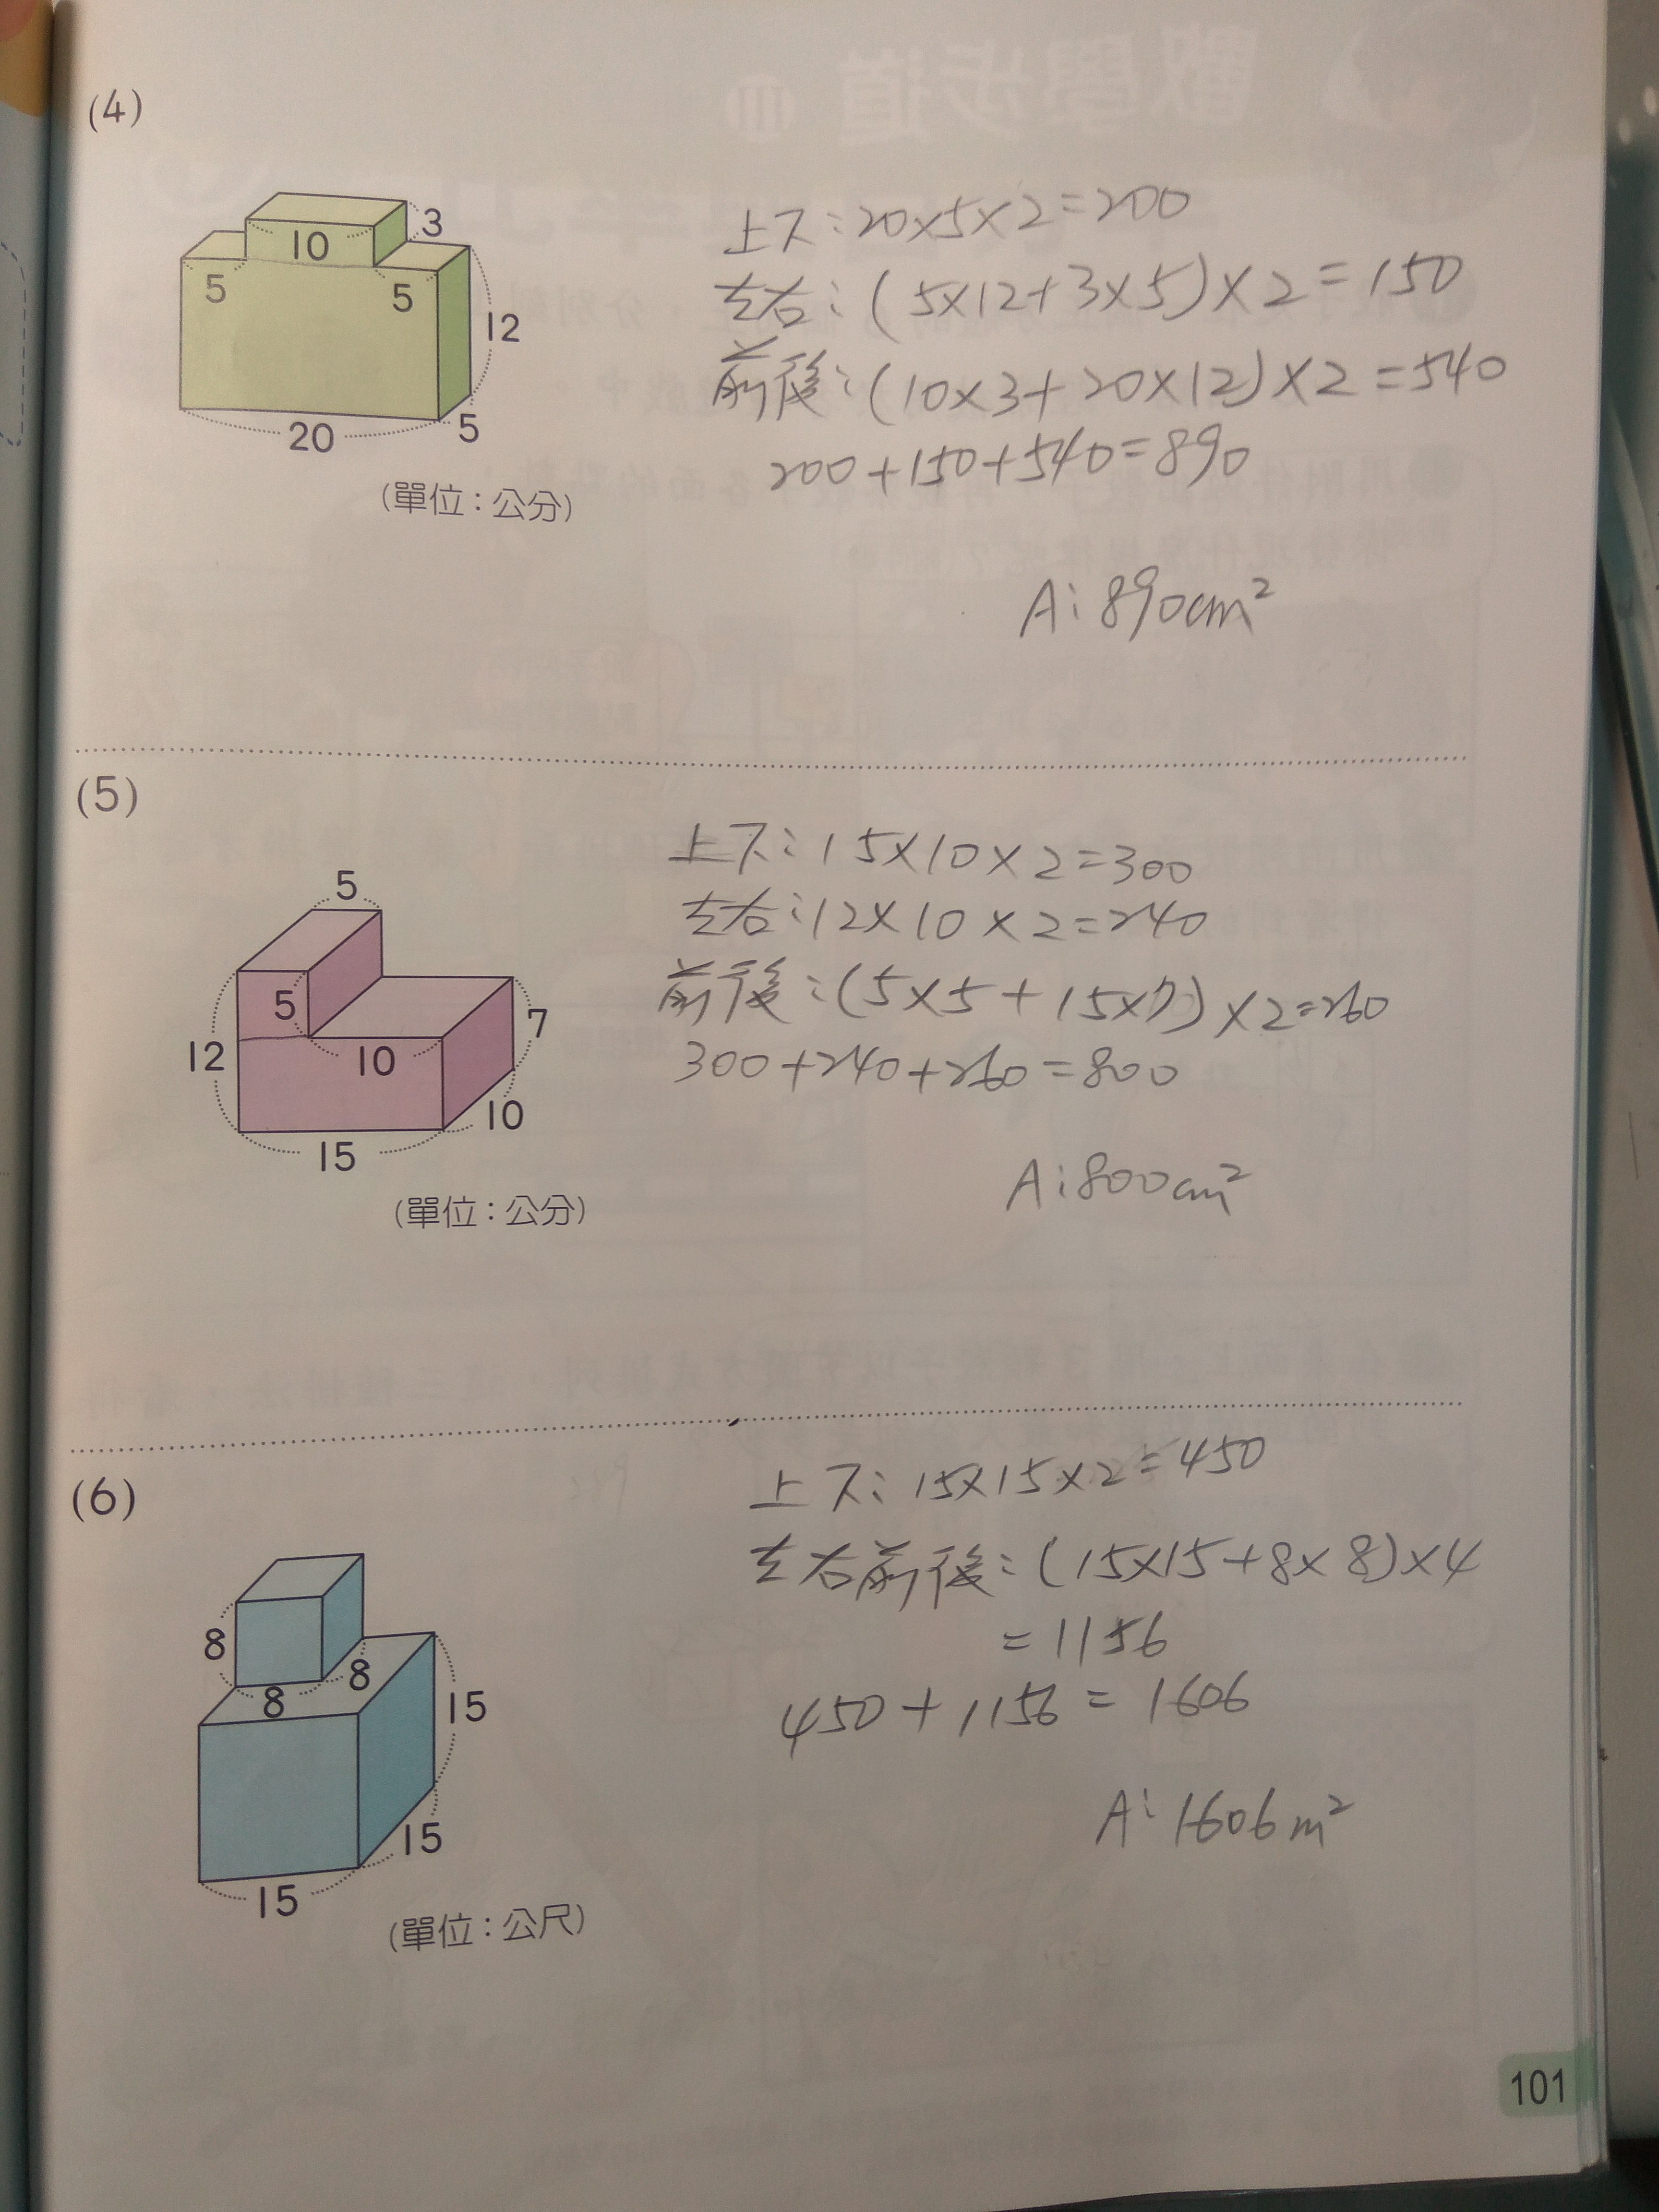 (4)
3
10
5
5
12
20
5
(單位：公分)
上下：20×5×2=200
左右：(5×12+3×5)×2=150
前後：(10×3+20×12)×2=540
200+150+540=890
A：890cm²
(5)
5
5
7
12
10
10
15
(單位：公分)
上下：15×10×2=300
左右：12×10×2=240
前後：(5×5+15×7)×2=260
300+240+260=800
A：800cm²
(6)
8
8
8
15
15
15
(單位：公尺)
上下：15×15×2=450
左右前後：(15×15+8×8)×4
=1156
450+1156=1606
A：1606m²
101